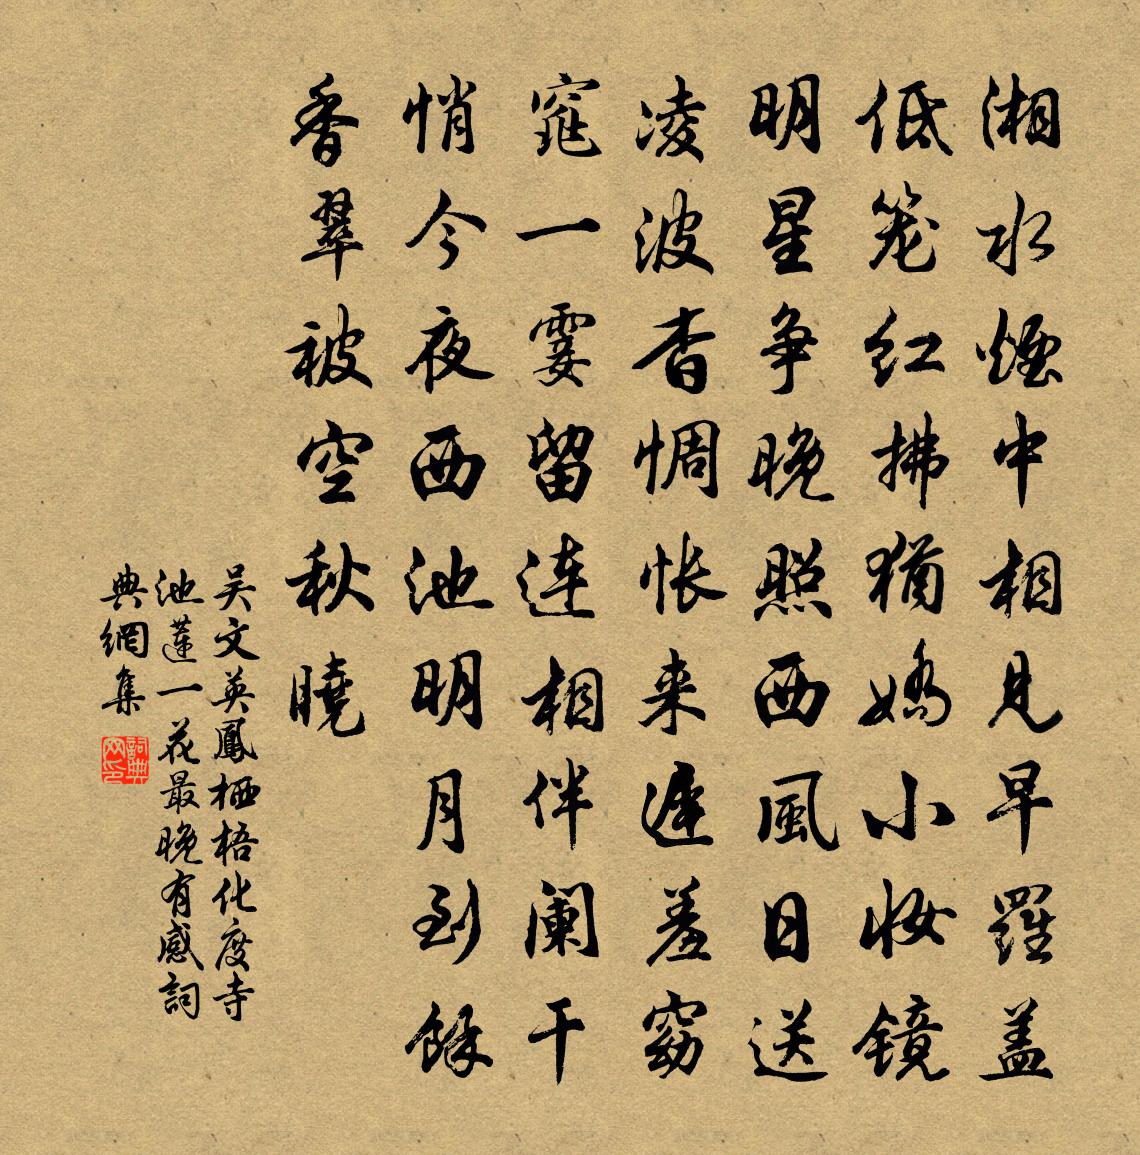 湘水煙中相見早羅盖
低笼红拂犹嬌小妆镜
明星争晚照西風日送
凌波杳惆怅来遲羞窈
窕一霎留连相伴阑干
悄今夜西池明月到餘
香翠被空秋曉
吴文英鳳栖梧化度寺
池蓮一花最晚有感詞
典網集
詞典
网印